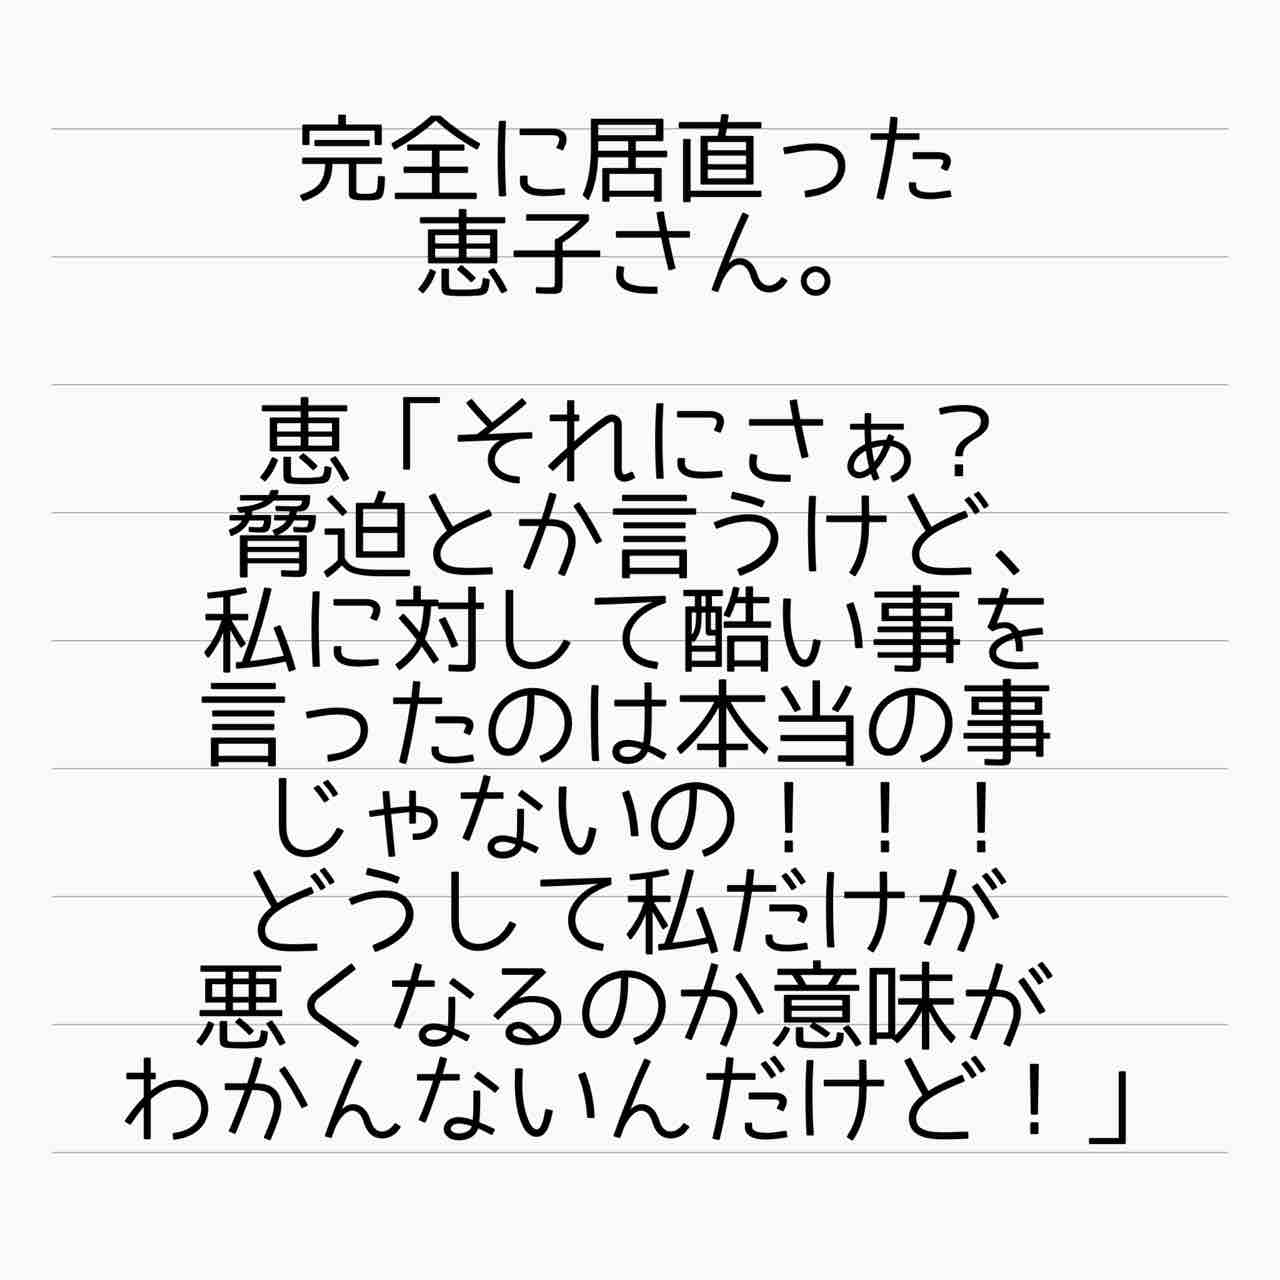 完全に居直った
恵子さん。
恵「それにさぁ？
脅迫とか言うけど、
私に対して酷い事を
言ったのは本当の事
じゃないの！！！
どうして私だけが
悪くなるのか意味が
わかんないんだけど！」